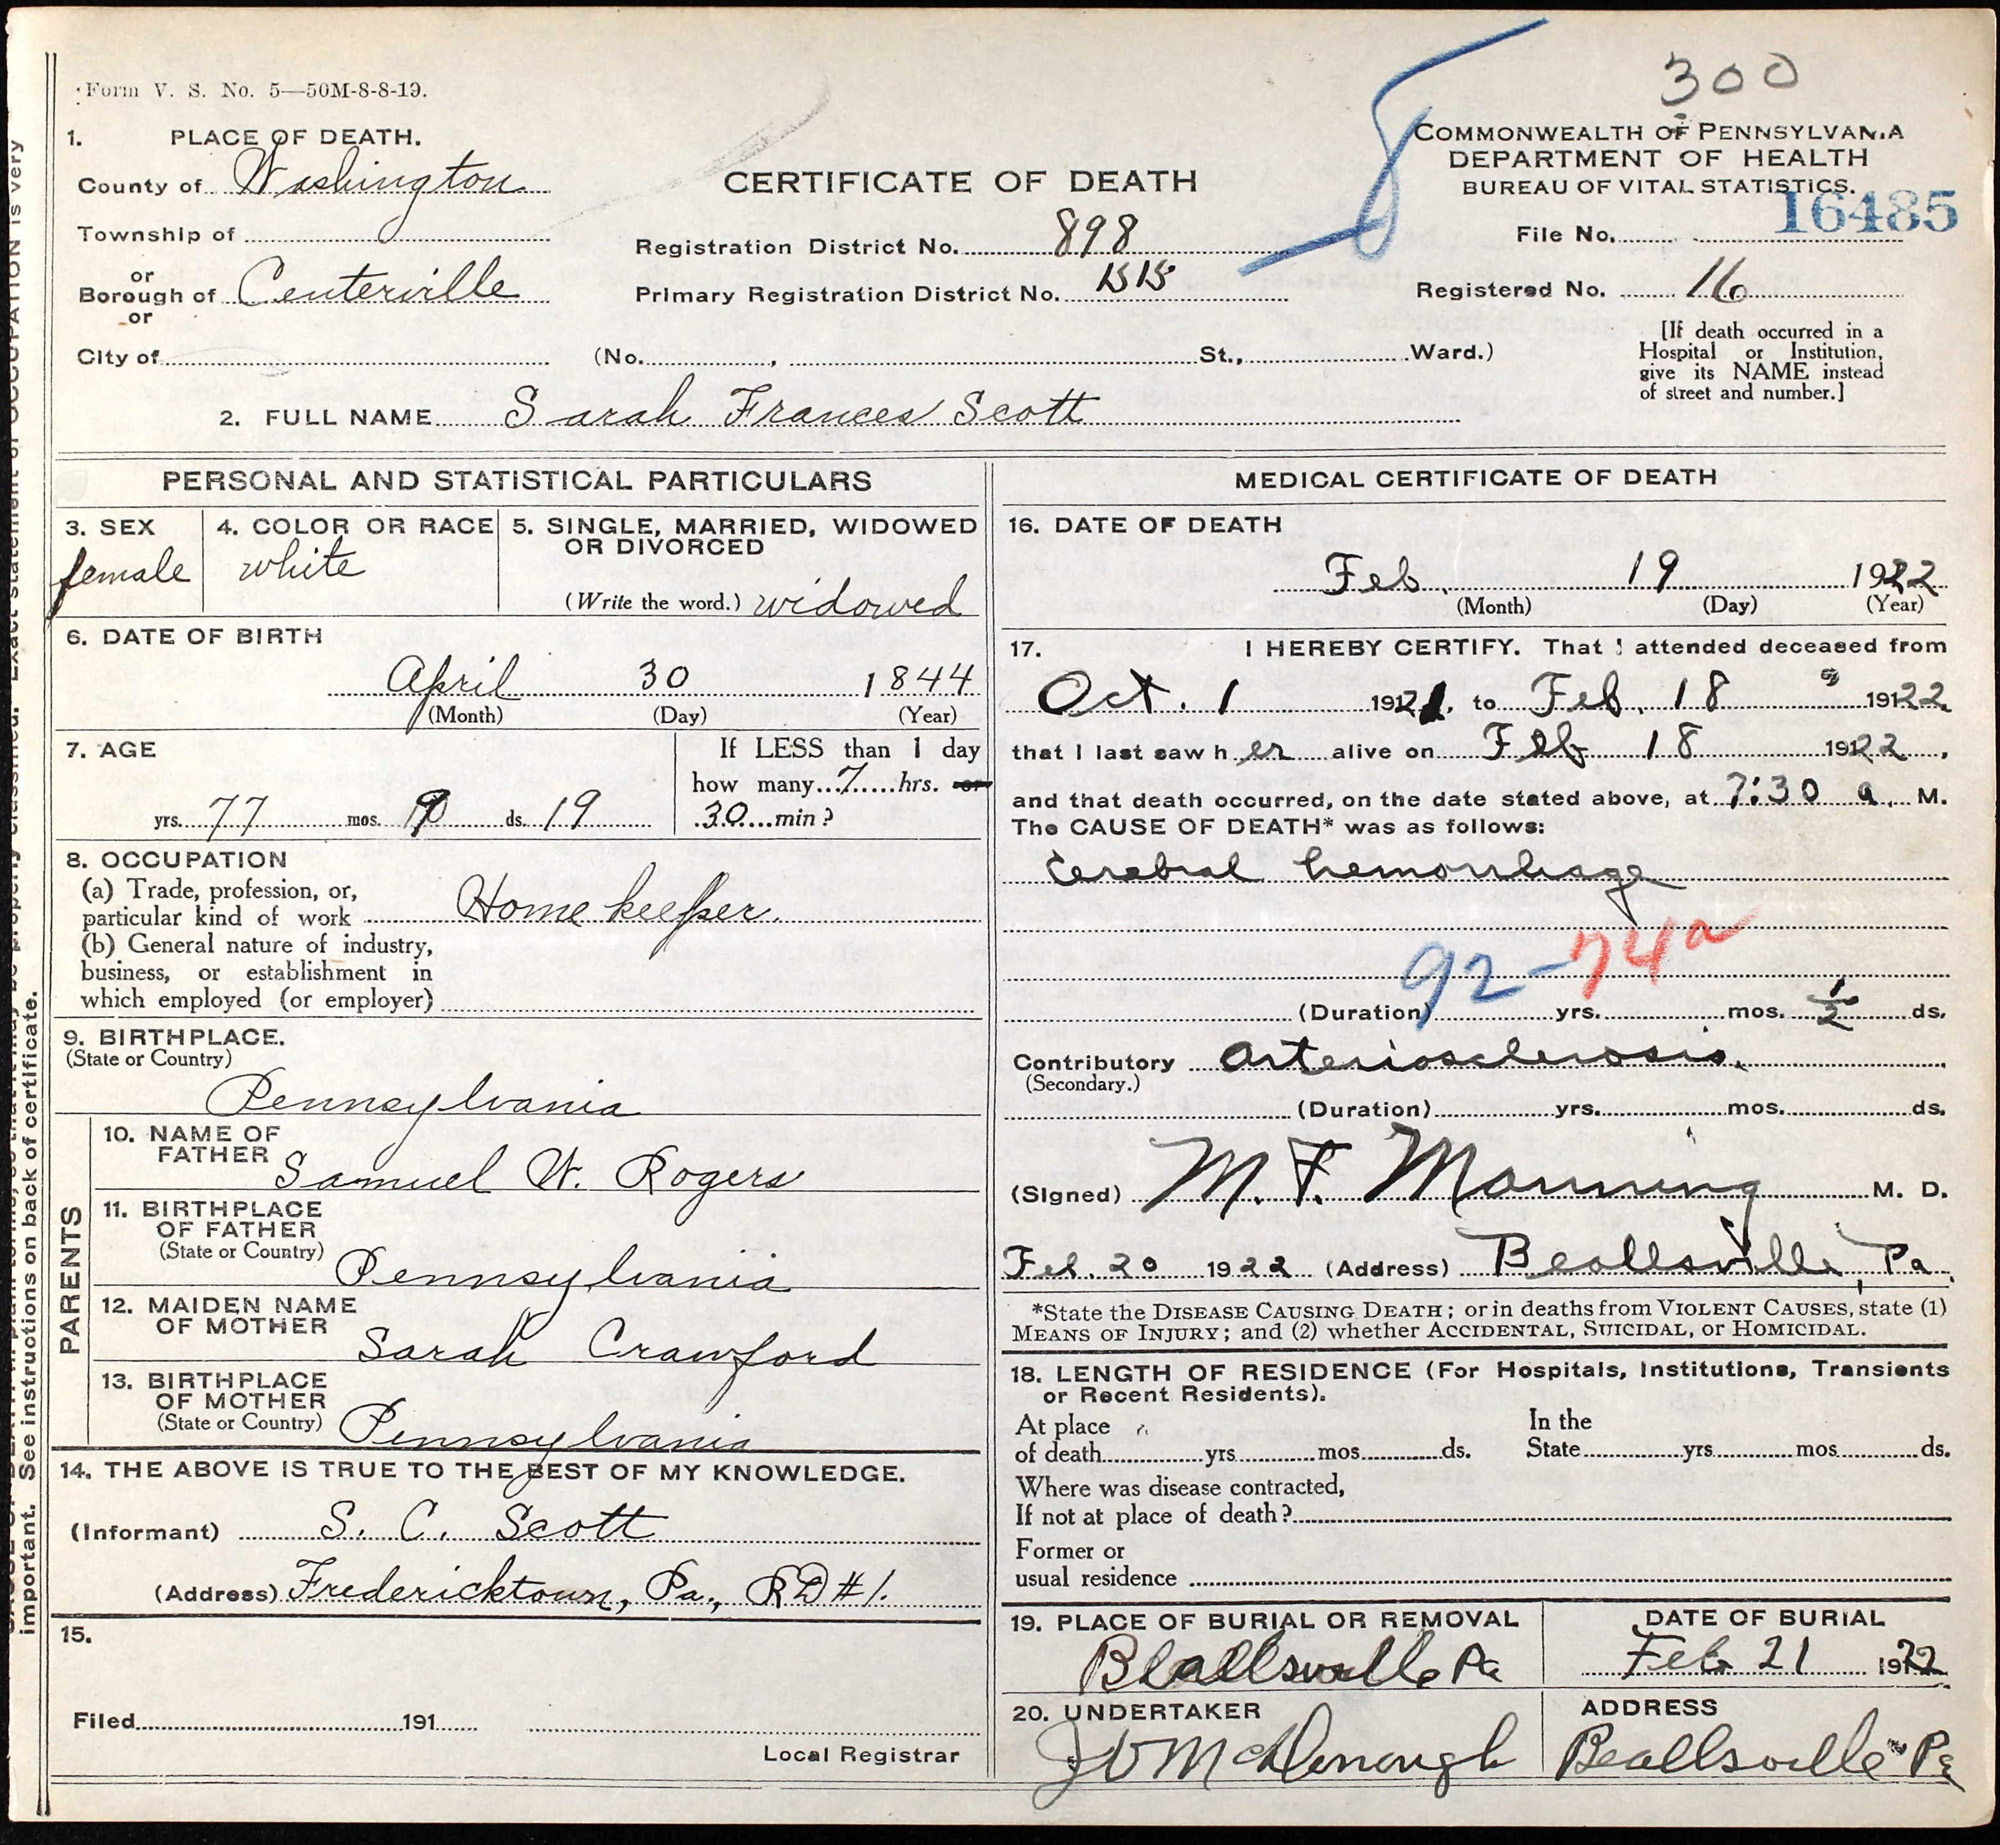 Form V. S. No. 5—50M-8-8-19.
300
1. PLACE OF DEATH.
County of Washington
Township of
or
Borough of Centerville
or
City of
CERTIFICATE OF DEATH
Registration District No. 898
Primary Registration District No. 1515
(No. , St., Ward.)
COMMONWEALTH OF PENNSYLVANIA
DEPARTMENT OF HEALTH
BUREAU OF VITAL STATISTICS.
File No. 16485
Registered No. 16
[If death occurred in a
Hospital or Institution,
give its NAME instead
of street and number.]
2. FULL NAME Sarah Frances Scott
PERSONAL AND STATISTICAL PARTICULARS
3. SEX
female
4. COLOR OR RACE
white
5. SINGLE, MARRIED, WIDOWED
OR DIVORCED
(Write the word.) widowed
6. DATE OF BIRTH
April 30 1844
(Month) (Day) (Year)
7. AGE
yrs. 77 mos. 9 ds. 19
If LESS than 1 day
how many 7 hrs. or
30 min?
8. OCCUPATION
(a) Trade, profession, or,
particular kind of work Home keeper
(b) General nature of industry,
business, or establishment in
which employed (or employer)
9. BIRTHPLACE.
(State or Country)
Pennsylvania
PARENTS
10. NAME OF
FATHER Samuel W. Rogers
11. BIRTHPLACE
OF FATHER
(State or Country) Pennsylvania
12. MAIDEN NAME
OF MOTHER Sarah Crawford
13. BIRTHPLACE
OF MOTHER
(State or Country) Pennsylvania
14. THE ABOVE IS TRUE TO THE BEST OF MY KNOWLEDGE.
(Informant) S. C. Scott
(Address) Fredericktown, Pa., RD #1.
15.
Filed 191
Local Registrar
MEDICAL CERTIFICATE OF DEATH
16. DATE OF DEATH
Feb. 19 1922
(Month) (Day) (Year)
17. I HEREBY CERTIFY. That I attended deceased from
Oct. 1 1921, to Feb. 18 1922
that I last saw her alive on Feb 18 1922,
and that death occurred, on the date stated above, at 7:30 a. M.
The CAUSE OF DEATH* was as follows:
Cerebral hemorrhage
92-74a
(Duration) yrs. mos. 1/2 ds.
Contributory Arteriosclerosis.
(Secondary.)
(Duration) yrs. mos. ds.
(Signed) M. F. Manning M. D.
Feb. 20 1922 (Address) Beallsville, Pa.
*State the DISEASE CAUSING DEATH; or in deaths from VIOLENT CAUSES, state (1)
MEANS OF INJURY; and (2) whether ACCIDENTAL, SUICIDAL, or HOMICIDAL.
18. LENGTH OF RESIDENCE (For Hospitals, Institutions, Transients
or Recent Residents).
At place In the
of death yrs mos ds. State yrs mos ds.
Where was disease contracted,
If not at place of death?
Former or
usual residence
19. PLACE OF BURIAL OR REMOVAL
Beallsville Pa
DATE OF BURIAL
Feb 21 1922
20. UNDERTAKER
ADDRESS
Beallsville Pa
important. See instructions on back of certificate.